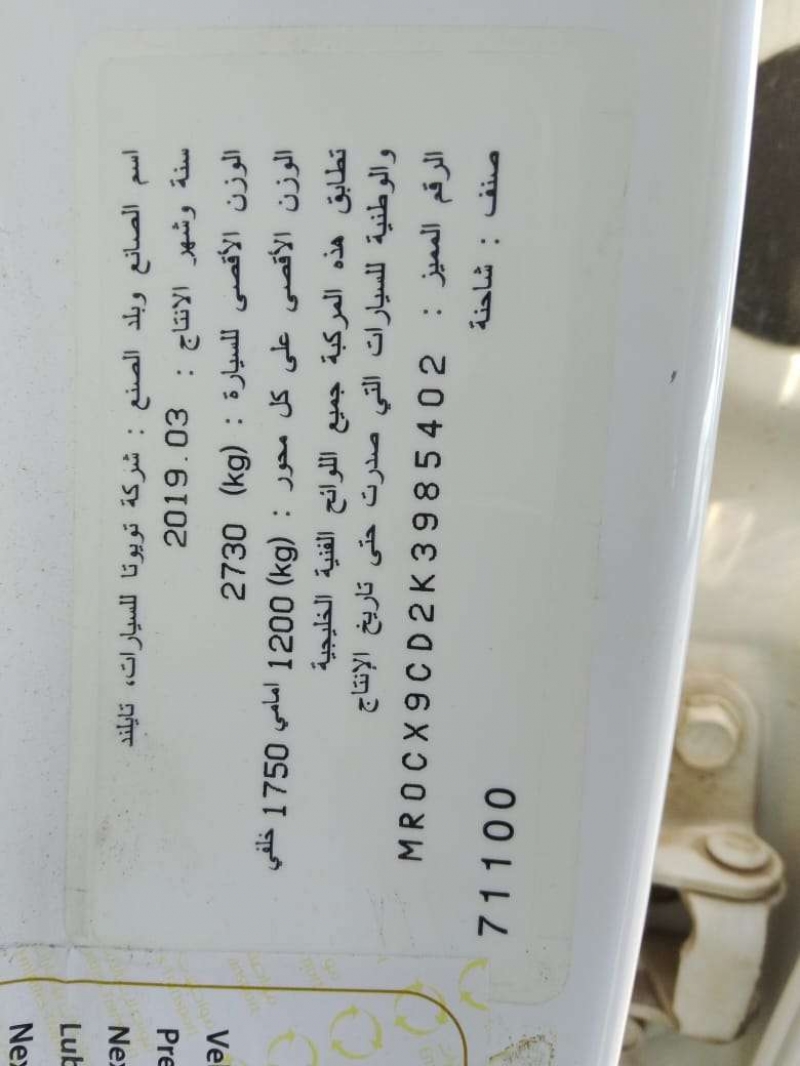 اسم الصانع وبلد الصنع : شركة تويوتا للسيارات، تايلند
سنة وشهر الانتاج : 2019.03
الوزن الأقصى للسيارة : (kg) 2730
الوزن الأقصى على كل محور : (kg) 1200 امامي 1750 خلفي
تطابق هذه المركبة جميع اللوائح الفنية الخليجية
والوطنية للسيارات التي صدرت حتى تاريخ الإنتاج
الرقم المميز : MR0CX9CD2K3985402
صنف : شاحنة
71100